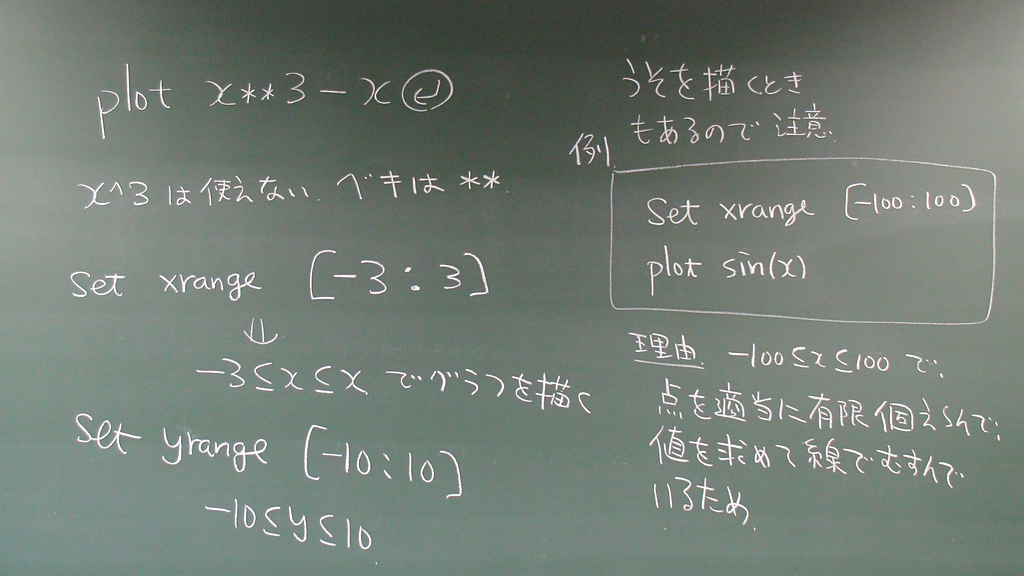 plot x**3-x ↵
x^3は使えない. ベキは**.
set xrange [-3:3]
⇓
-3≤x≤x でグラフを描く
set yrange [-10:10]
-10≤y≤10
うそを描くとき
もあるので注意.
例.
set xrange [-100:100]
plot sin(x)
理由. -100≤x≤100 で,
点を適当に有限個えらんで,
値を求めて線でむすんで
いるため.